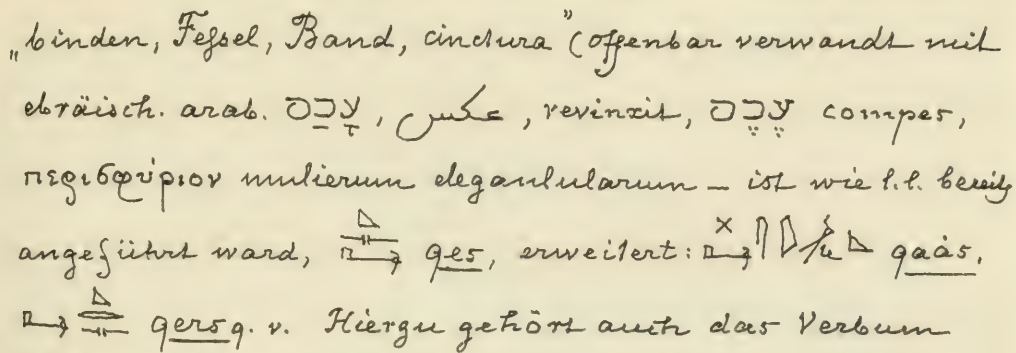 „binden, Feßel, Band, cinctura“ (offenbar verwandt mit
ebräisch. arab. עָכַס, عكس, revinxit, עֶכֶס compes,
περισφύριον mulierum elegantularum – ist wie l.l. bereits
angeführt ward, qes, erweitert: qaȧs,
qers q. v. Hierzu gehört auch das Verbum